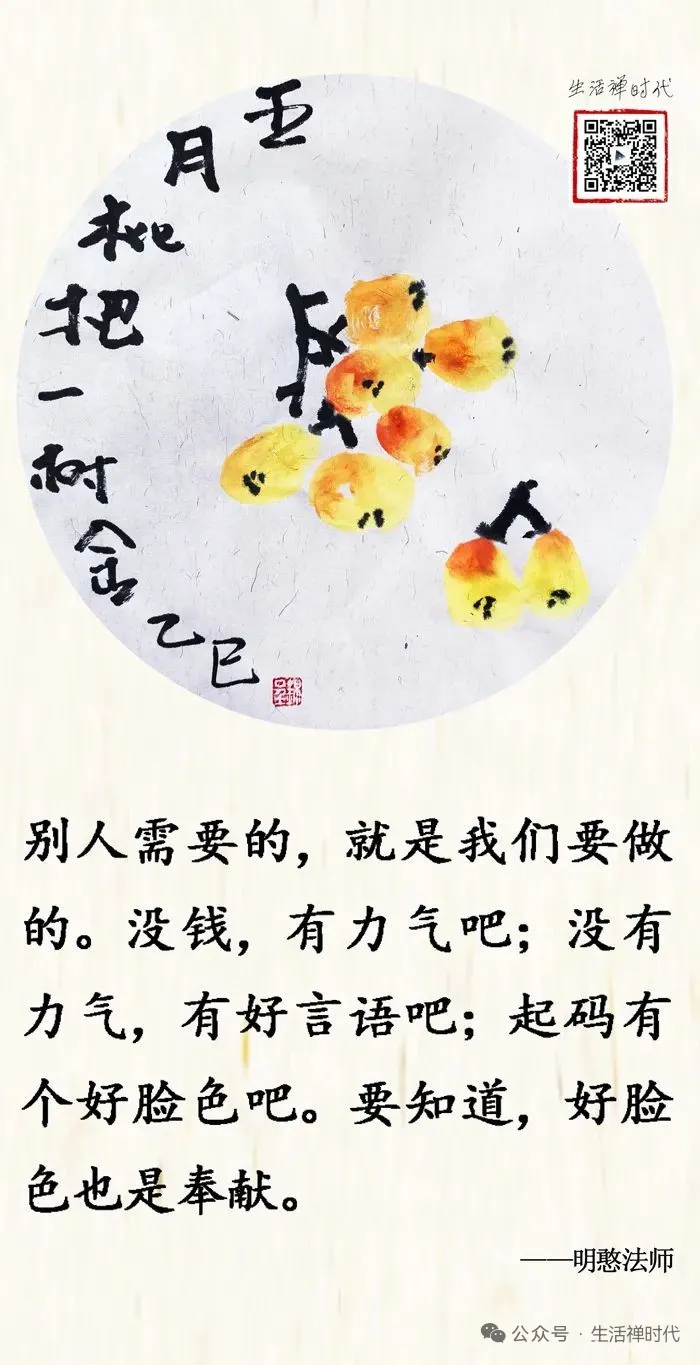 生活禅时代
五
月
枇
把
一
树
金
乙
巳
别人需要的，就是我们要做
的。没钱，有力气吧；没有
力气，有好言语吧；起码有
个好脸色吧。要知道，好脸
色也是奉献。
——明憨法师
公众号 · 生活禅时代